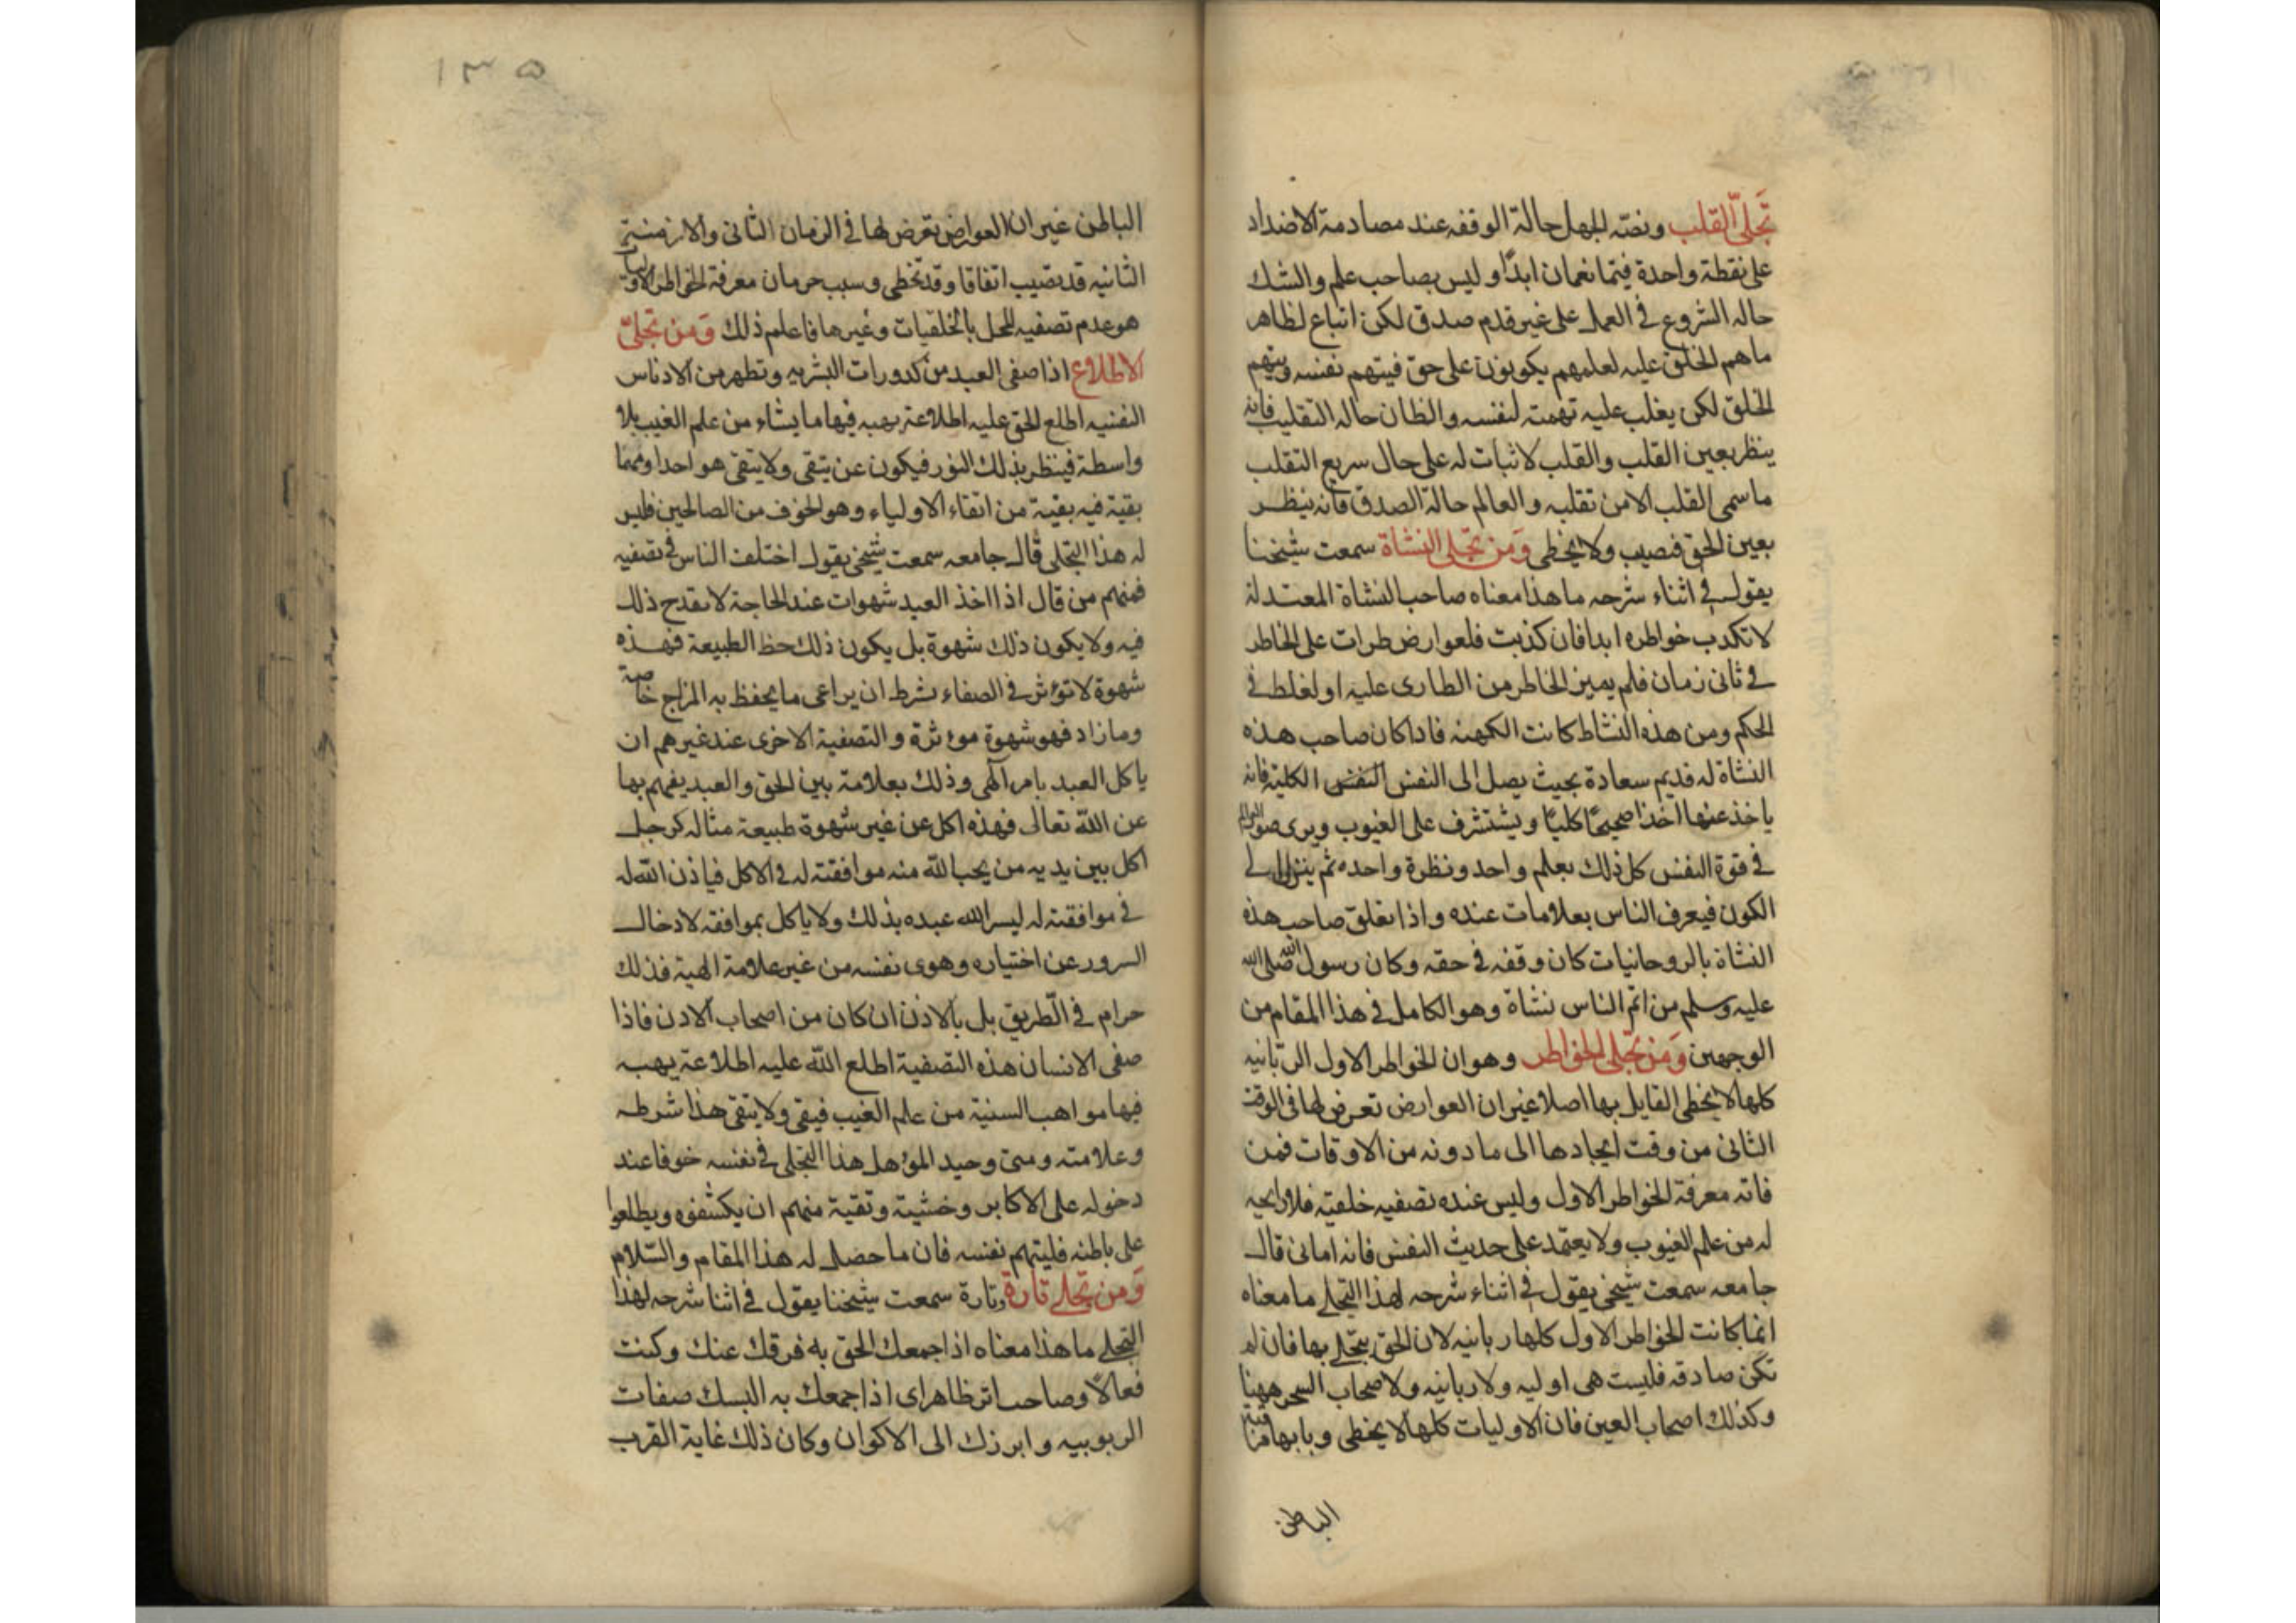 تجلى القلب ونصّه الجهل حالة الوقفه عند مصادمة الاضداد
على نقطة واحدة فيتمانعان ابدًا وليس بصاحب علم والشك
حاله الشروع فى العمل على غير قدم صدق لكن اتباع لظاهر
ما هم الخلق عليه لعلهم يكونون على حق فيتهم نفسه ويتهم
الخلق لكن يغلب عليه تهمته لنفسه والظان حاله التقليب فانه
ينظر بعين القلب والقلب لا ثبات له على حال سريع التقلب
ما سمى القلب الا من تقلبه والعالم حالة الصدق فانه ينظر
بعين الحق فيصيب ولا يخطى ومن تجلى النشاة سمعت شيخنا
يقول فى اثناء شرحه ما هذا معناه صاحب النشاة المعتدلة
لا تكدب خواطره ابدا فان كذبت فلعوارض طرات على الخاطر
فى ثانى زمان فلم يميز الخاطر من الطارى عليه او لغلط فى
الحكم ومن هذه النشاط كانت الكهنه فاذا كان صاحب هذه
النشاة له قديم سعادة بحيث يصل الى النفس النفس الكلية فانه
ياخذ عنها اخذا صحيحًا كليًا ويشتشرف على الغيوب ويرى صور العوالم
فى قوة النفس كل ذلك بعلم واحد ونظرة واحده ثم ينزل الى
الكون فيعرف الناس بعلامات عنده واذا تعلق صاحب هذه
النشاة بالروحانيات كان وقفه فى حقه وكان رسول الله صلى الله
عليه وسلم من اتم الناس نشاة وهو الكامل فى هذا المقام من
الوجهين ومن تجلى الخواطر وهو ان الخواطر الاول الربانيه
كلها لا يخطى القايل بها اصلا غير ان العوارض تعرض لها فى الوقت
الثانى من وقت ايجادها الى ما دونه من الاوقات فمن
فاته معرفة الخواطر الاول وليس عنده تصفيه خلقية فلا رايحه
له من علم الغيوب ولا يعتمد على حديث النفس فانه امانى قال
جامعه سمعت شيخى يقول فى اثناء شرحه لهذا التجلى ما معناه
انما كانت الخواطر الاول كلها ربانيه لان الحق يتجلى بها فان لم
تكن صادقه فليست هى اوليه ولا ربانيه ولاصحاب السحر ههنا
وكذلك اصحاب العين فان الاوليات كلها لا يخطى وبابها
الباطن
١٣٥
الباطن غير ان العوارض تعرض لها فى الزمان الثانى والازمنة
الثانيه قد تصيب اتفاقا وقد تخطى وسبب حرمان معرفة الخواطر الاول
هو عدم تصفيه المحل بالخلقيات وغيرها فاعلم ذلك ومن تجلىّ
الاطلاع اذا صفى العبد من كدورات البشريه وتطهر من الادناس
النفسيه اطلع الحق عليه اطلاعة يهبه فيها ما يشاء من علم الغيب بلا
واسطة فينظر بذلك النور فيكون عن يتقى ولا يتقى هو احدا ومهما
بقية فيه بقية من اتقاء الاولياء وهو الخوف من الصالحين فليس
له هذا التجلى قال جامعه سمعت شيخى يقول اختلف الناس فى تصفيه
فمنهم من قال اذا اخذ العبد شهوات عند الحاجة لا يقدح ذلك
فيه ولا يكون ذلك شهوة بل يكون ذلك حظ الطبيعة فهذه
شهوة لا تؤثر فى الصفاء بشرط ان يراعى ما يحفظ به المزاج خاصة
وما زاد فهو شهوة موءثرة والتصفية الاخرى عند غيرهم ان
ياكل العبد بامر آلهى وذلك بعلامة بين الحق والعبد يفهم بها
عن الله تعالى فهذه اكل عن غير شهوة طبيعة مثاله كرجل
اكل بين يديه من يحب الله منه موافقته له فى الاكل فياذن الله له
فى موافقته له ليسر الله عبده بذلك ولا ياكل بموافقه لادخال
السرور عن اختياره وهوى نفسه من غير علامة الهية فذلك
حرام فى الطريق بل بالاذن ان كان من اصحاب الاذن فاذا
صفى الانسان هذه التصفية اطلع الله عليه اطلاعة يهبه
فيها مواهب السنية من علم الغيب فيقى ولا يتقى هذا شرطه
وعلامته ومتى وجد المؤهل هذا التجلى فى نفسه خوفا عند
دخوله على الاكابر وخشية وتقية منهم ان يكشفوه ويطلعوا
على باطنه فليتهم نفسه فان ما حصل له هذا المقام والسّلام
ومن تجلى تارة وتارة سمعت شيخنا يقول فى اثنا شرحه لهذا
التجلى ما هذا معناه اذا جمعك الحق به فرقك عنك وكنت
فعالًا وصاحب اثر ظاهر اى اذا جمعك به البسك صفات
الربوبيه وابرزك الى الاكوان وكان ذلك غاية القرب